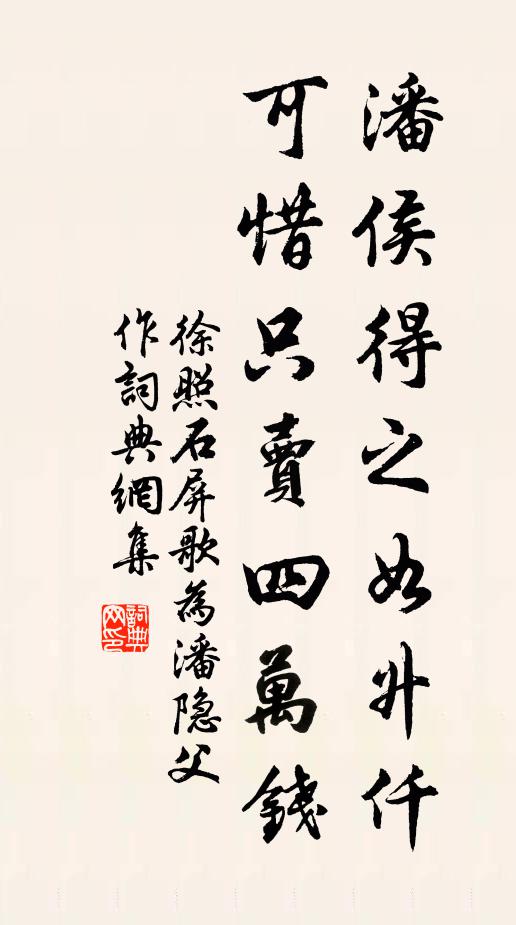 潘侯得之如升仟
可惜只賣四萬錢
徐照石屏歌為潘隐父
作詞典網集
詞典网印